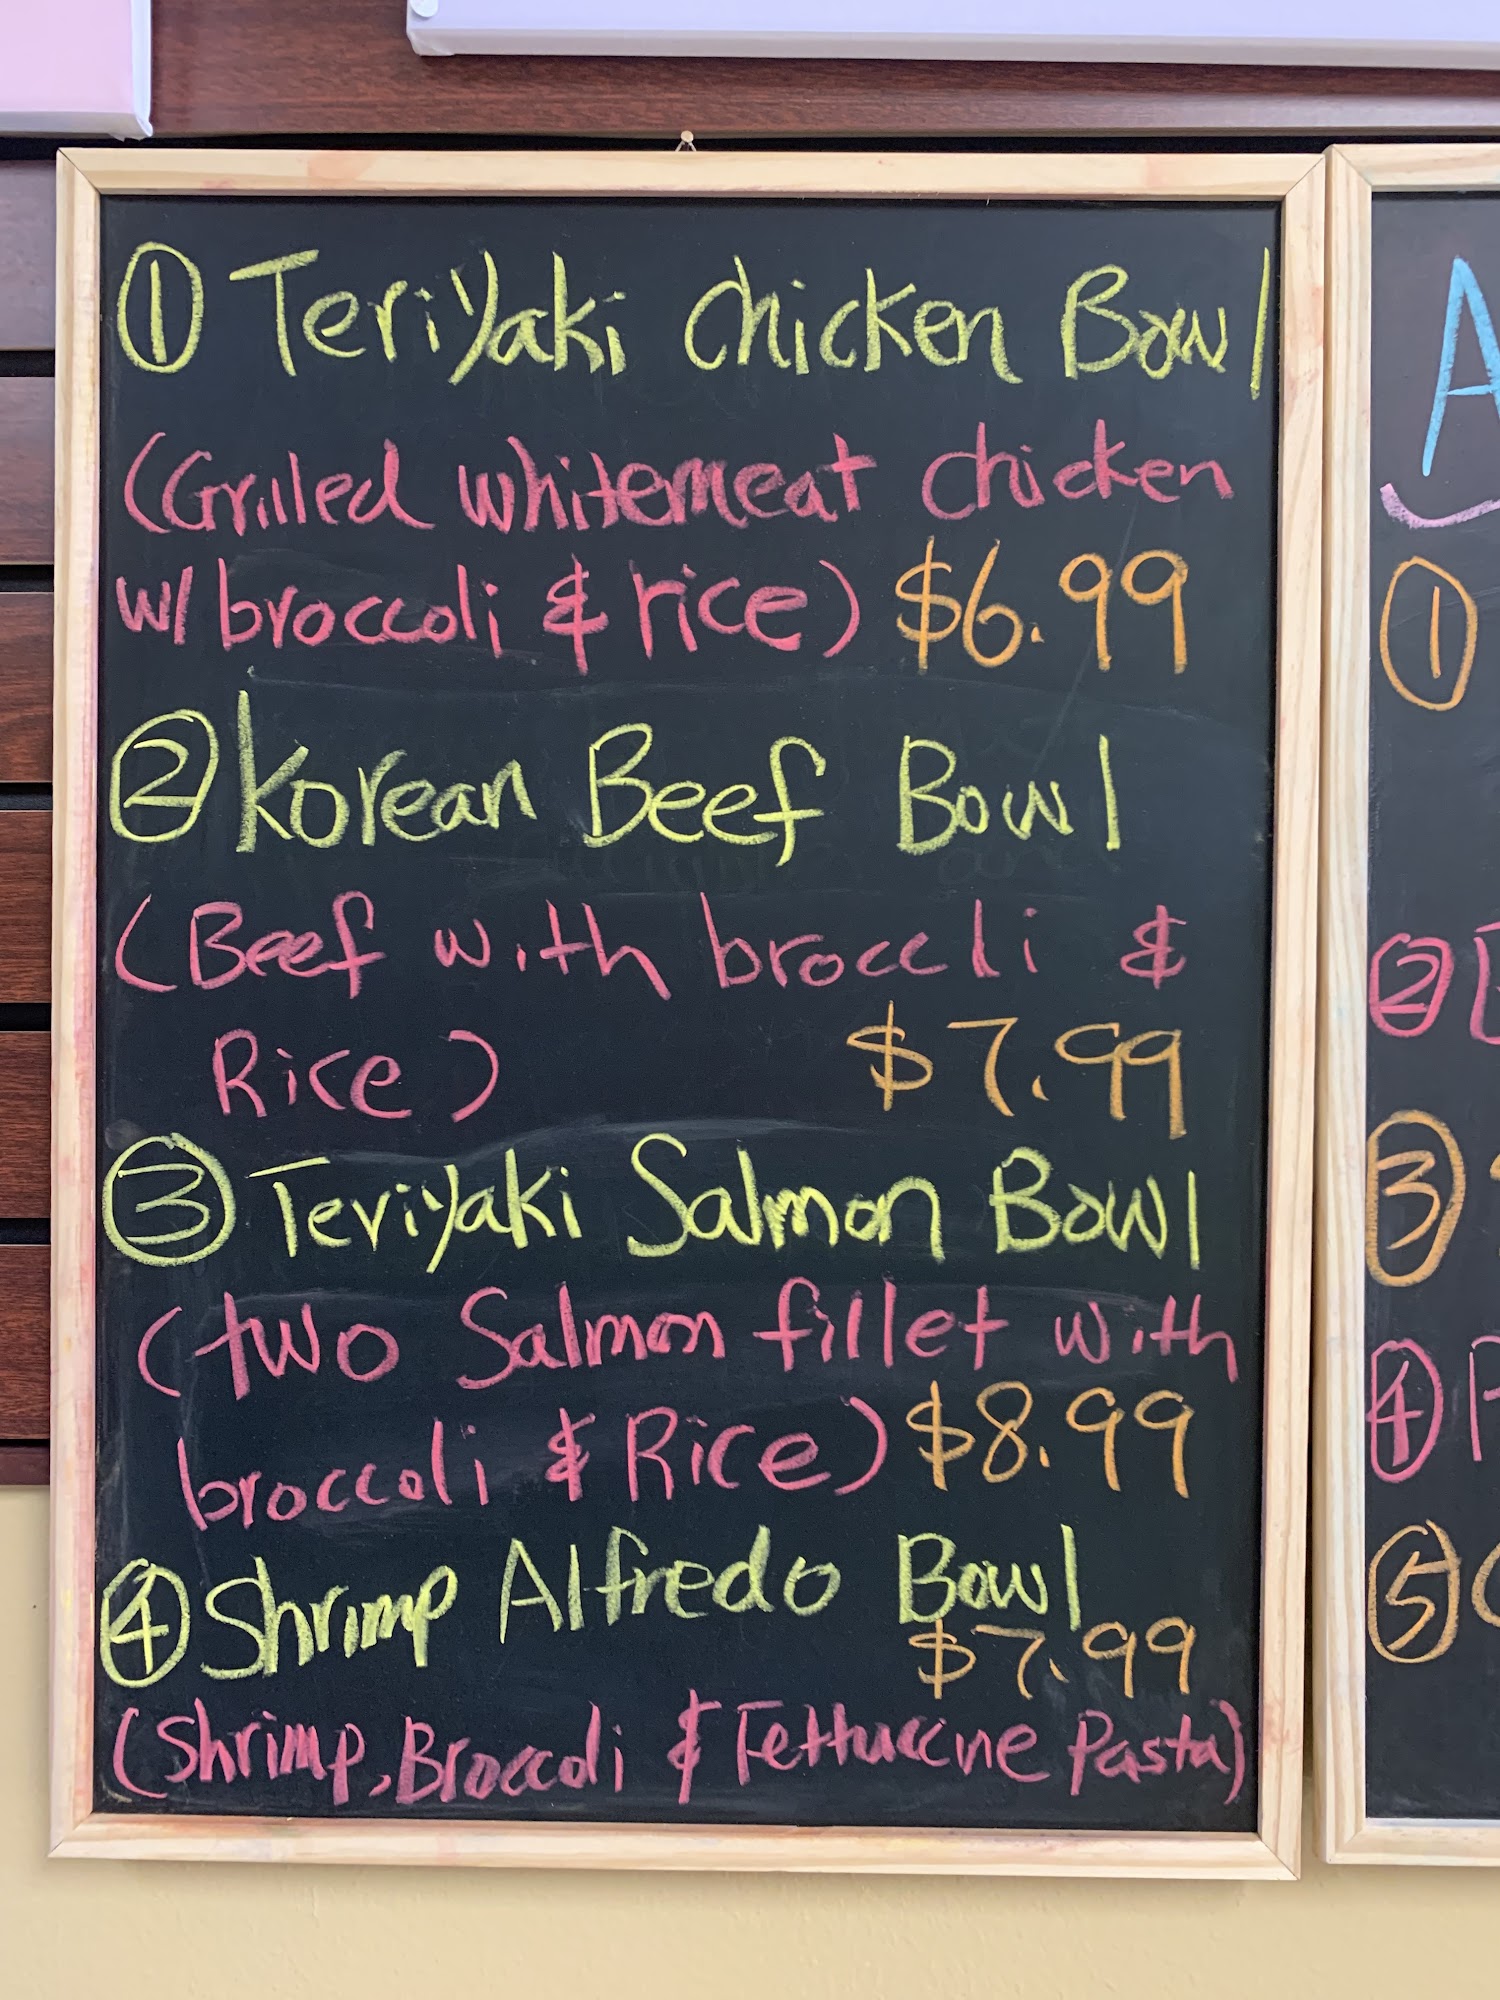 ① Teriyaki Chicken Bowl
(Grilled whitemeat chicken
w/ broccoli & rice) $6.99
② Korean Beef Bowl
(Beef with broccli &
Rice) $7.99
③ Teriyaki Salmon Bowl
(two Salmon fillet with
broccoli & Rice) $8.99
④ Shrimp Alfredo Bowl
$7.99
(Shrimp, Broccoli & Fettuccine Pasta)
A
①
②
③
④
⑤